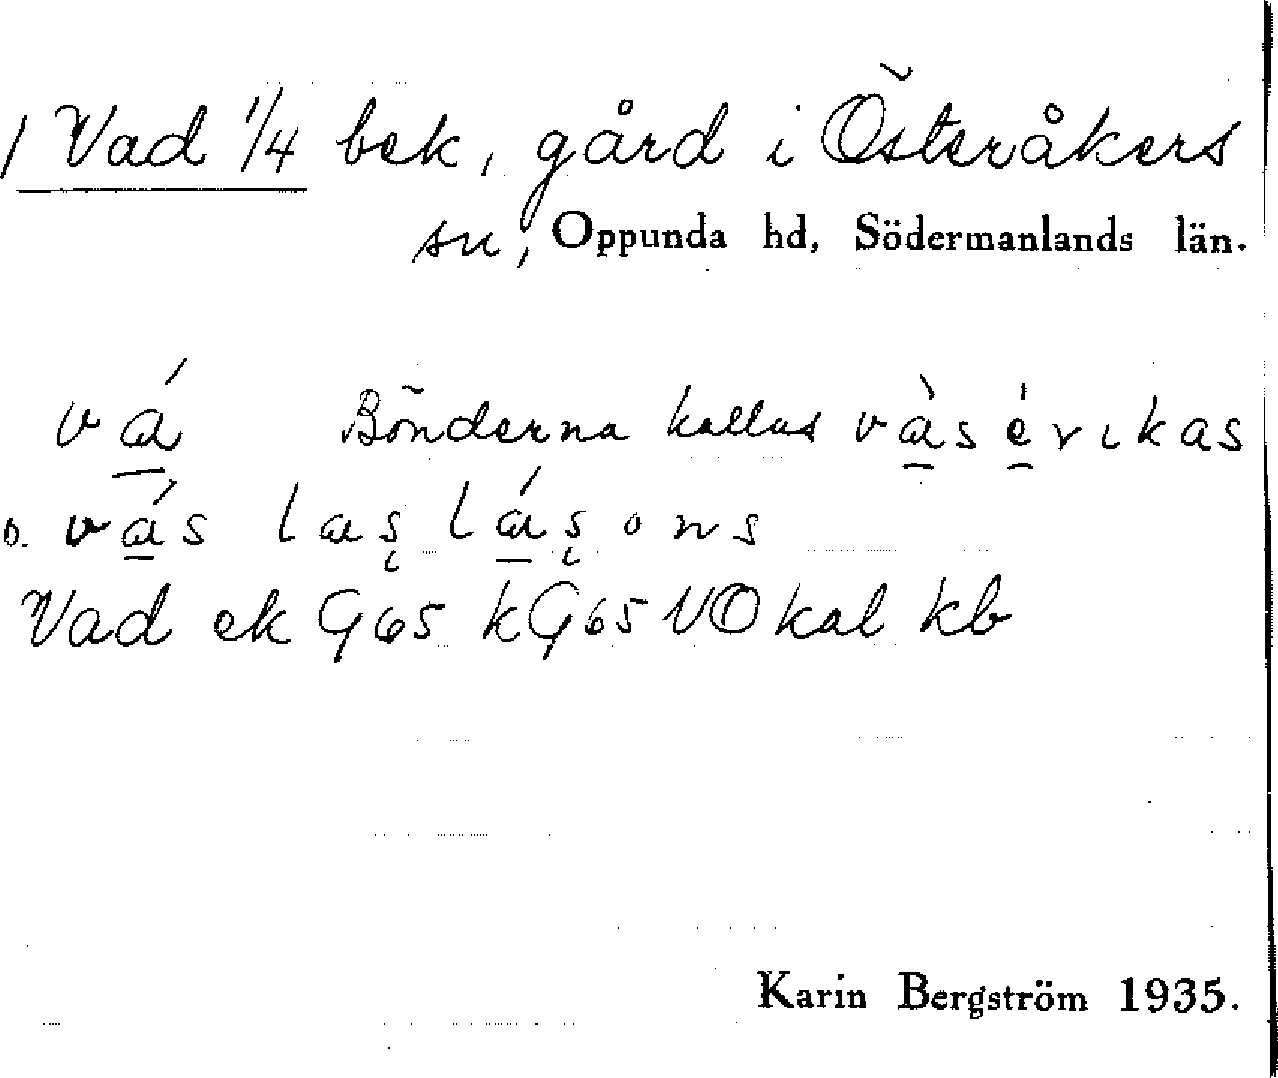 1 Vad 1/4 bek, gård i Österåkers
sn, Oppunda hd, Södermanlands län.
vá̱ Bönderna kallas và̱s é̱rɩkas
o. vá̱s læş lá̱şons
Vad ek G65 kG65 VÖ kal kb
Karin Bergström 1935.